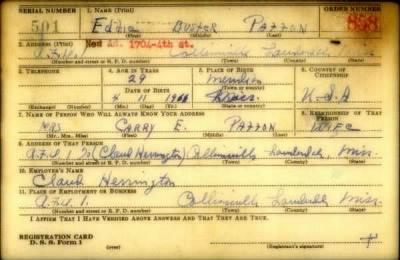 SERIAL NUMBER 1. NAME (Print) ORDER NUMBER
501 Eddie BUSTER PATTON 858
(First) (Middle) (Last)
2. ADDRESS (Print) New Ad. 1704-4th st.
Collinsville Lauderdale Miss
(Number and street or R. F. D. number) (Town) (County) (State)
3. TELEPHONE 4. AGE IN YEARS 5. PLACE OF BIRTH 6. COUNTRY OF CITIZENSHIP
29
(Town or county)
DATE OF BIRTH
4 11 U.S.A
(Exchange) (Number) (Mo.) (Day) (Yr.) (State or country)
7. NAME OF PERSON WHO WILL ALWAYS KNOW YOUR ADDRESS 8. RELATIONSHIP OF THAT PERSON
MRS CARRY E. PATTON WIFE
(Mr., Mrs., Miss) (First) (Middle) (Last)
9. ADDRESS OF THAT PERSON
(Claud Herrington) Collinsville Lauderdale, Miss.
(Number and street or R. F. D. number) (Town) (County) (State)
10. EMPLOYER'S NAME
Claud Herrington
11. PLACE OF EMPLOYMENT OR BUSINESS
Collinsville Lauderdale Miss.
(Number and street or R. F. D. number) (Town) (County) (State)
I AFFIRM THAT I HAVE VERIFIED ABOVE ANSWERS AND THAT THEY ARE TRUE.
REGISTRATION CARD
D. S. S. Form 1 (Registrant's signature)